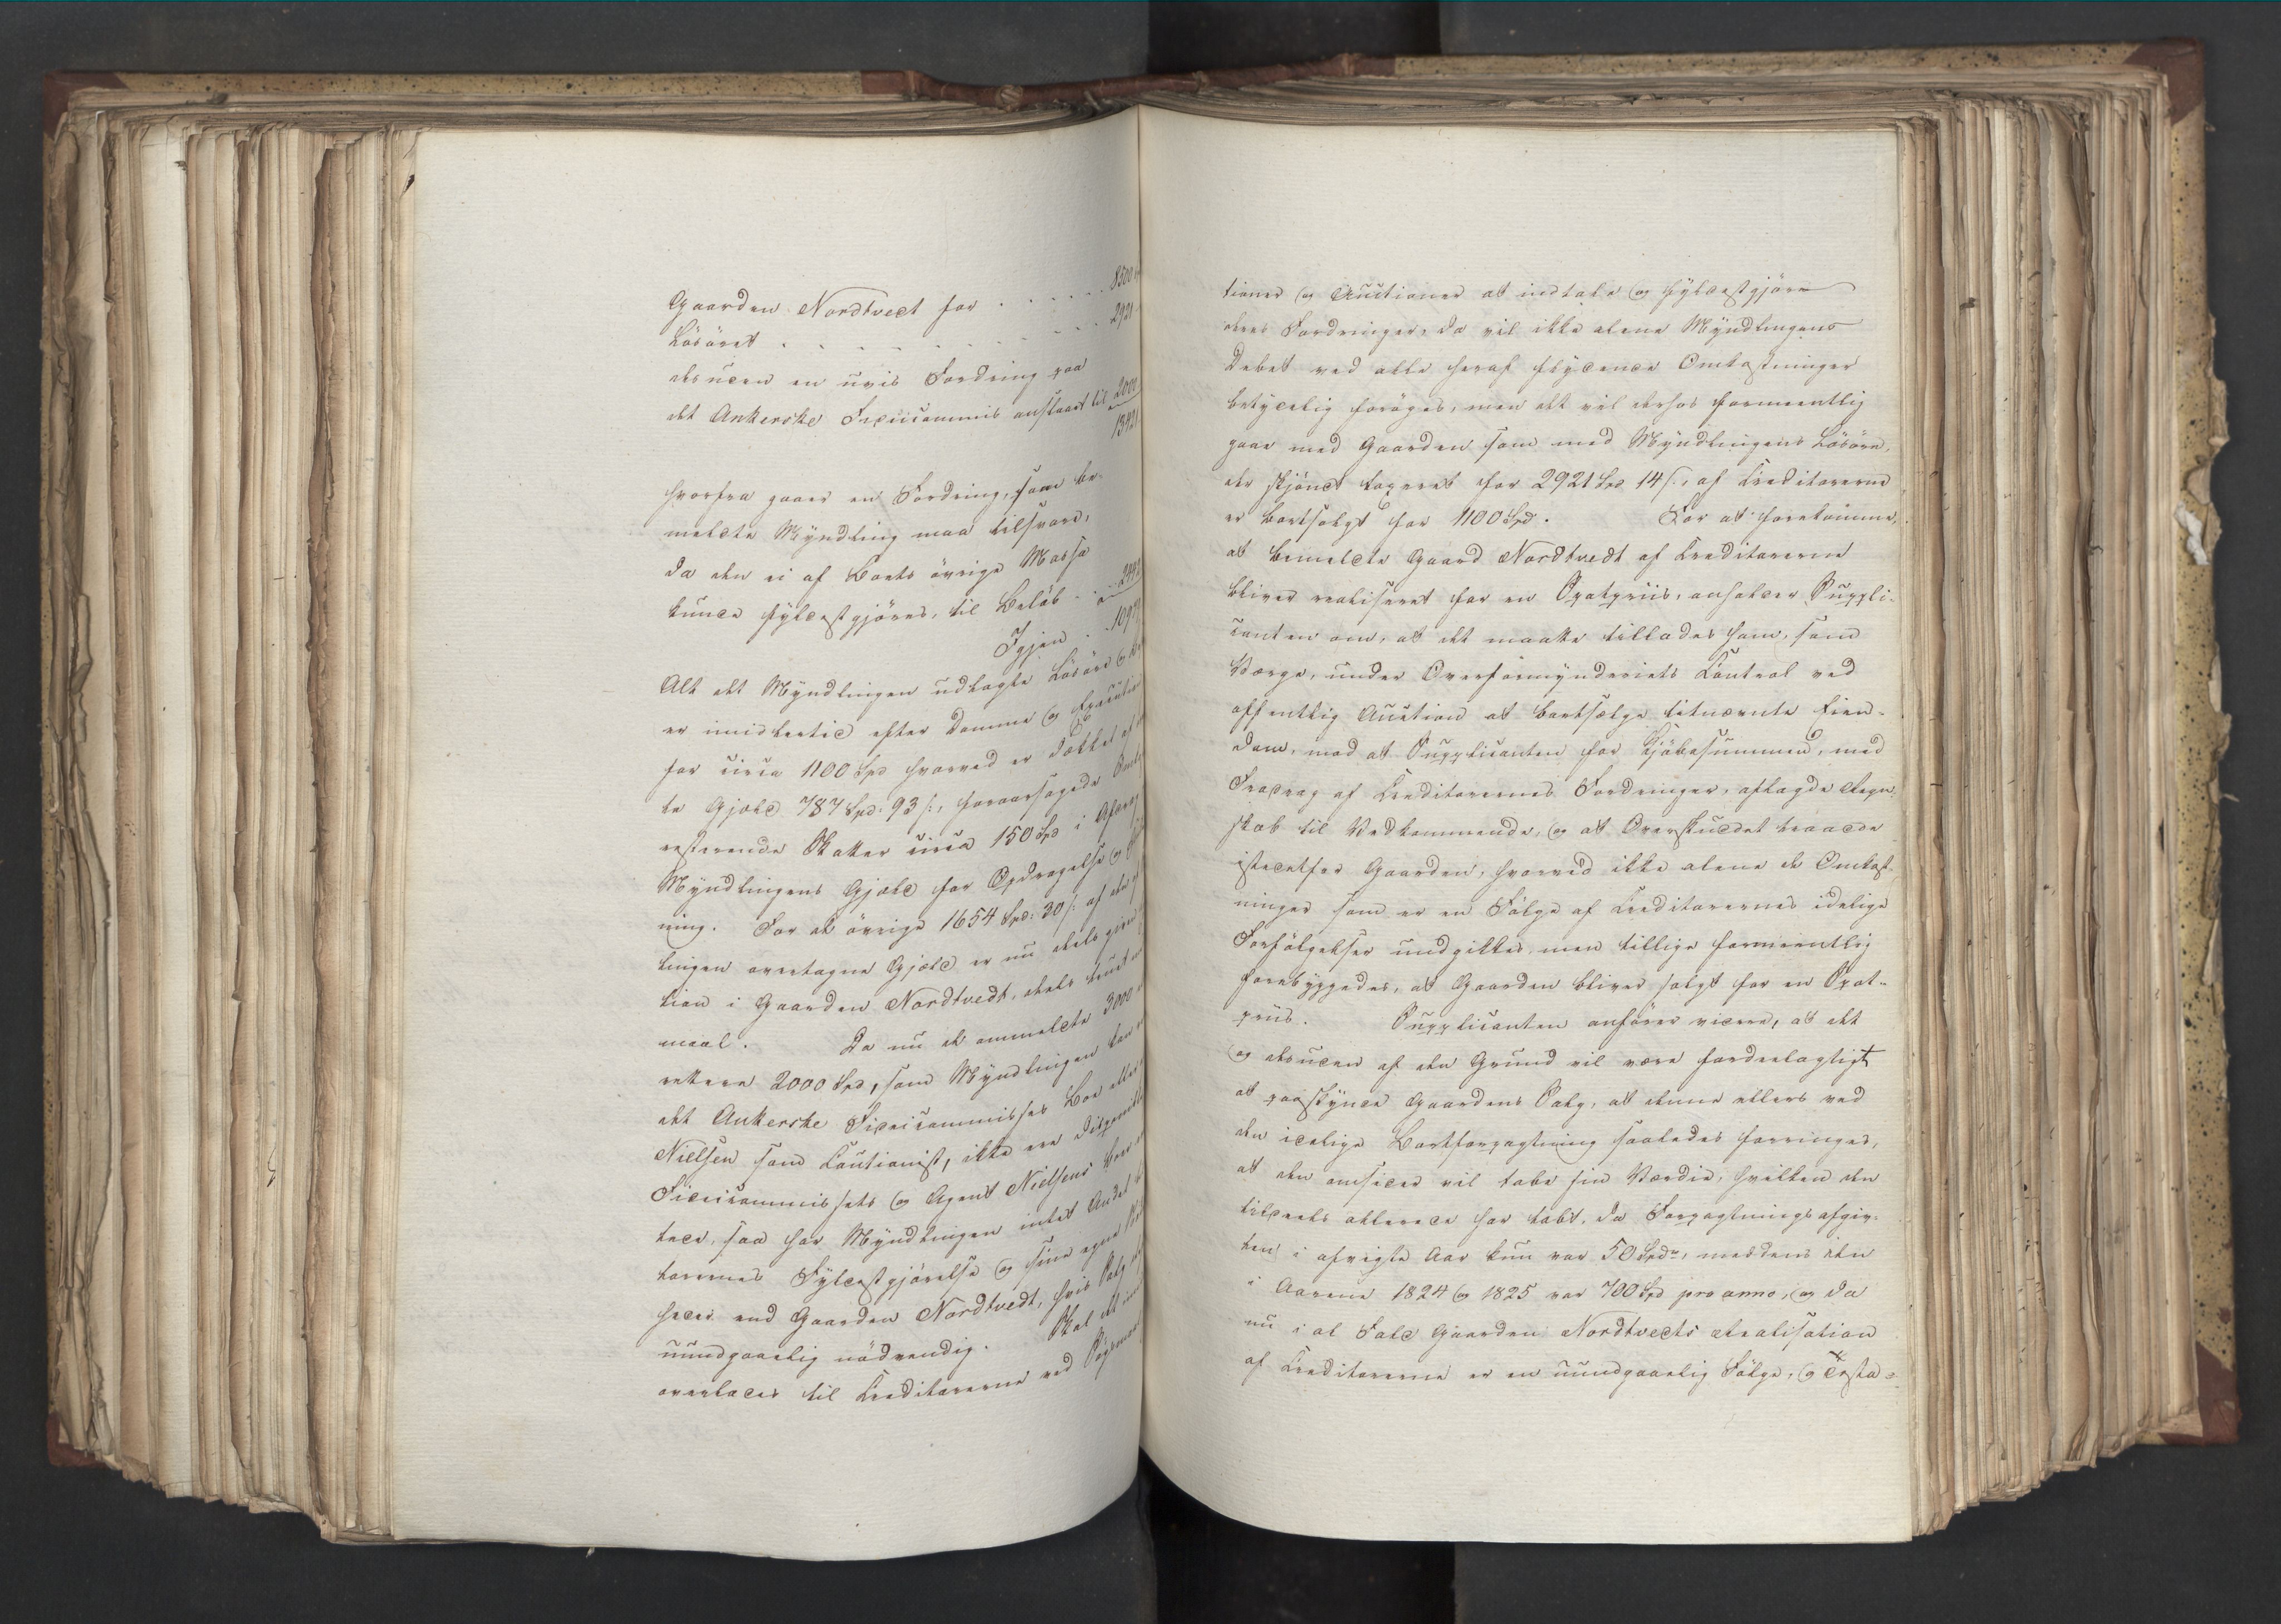 Gaarden Nordtvedt for . . . . . . 8500
Løsøret . . . . . . . . . 2921
desuden en uvis Fordring paa
det Ankerske Fideicommis anslaaet til 2000
13421
hvorfra gaaer en Fordring, som be-
meldte Myndling maa tilsvare,
da den ei af Boets øvrige Masse
kunde fyldestgjøres, til Beløb
Igjen
Alt det Myndlingen udlagte Løsøre og
er imidlertid efter Domme og Execution
for circa 1100 Spd hvorved er dækket af
te Gjæld 787 Spd: 93 s:, foraarsagede
resterende Skatter circa 150 Spd i
Myndlingens Gjæld for Opdragelse og
ning. For de øvrige 1654 Spd: 30 s: af
lingen overtagne Gjæld er nu deels
tion i Gaarden Nordtvedt, deels
maal. Da nu de ommeldte 3000
rettere 2000 Spd, som Myndlingen
det Ankerske Fideicommisses Boe eller
Nielsen som Cautionist, ikke ere
Fideicommissets og Agent Nielsens
tede, saa har Myndlingen intet Andet
torernes Fyldestgjørelse og sine egne
heder end Gaarden Nordtvedt, hvis Salg
uundgaaelig nødvendig. Skal det
overlades til Creditorerne ved
tioner og Auctioner at indtale og fyldestgjøre
deres Fordringer, da vil ikke alene Myndlingens
Debet ved alle heraf flydende Omkostninger
betydelig forøges, men det vil derhos formeentlig
gaae med Gaarden som med Myndlingens Løsøre,
der skjøndt taxeret for 2921 Spd 14 s:, af Creditorerne
er bortsolgt for 1100 Spd. For at forekomme,
at bemeldte Gaard Nordtvedt af Creditorerne
bliver realiseret for en Spotpriis, anholder Suppli-
canten om, at det maatte tillades ham, som
Værge, under Overformynderiets Control ved
offentlig Auction at bortsælge bitnævnte Eien-
dom, mod at Supplicanten for Kjøbesummen, med
Fradrag af Creditorernes Fordringer, aflagde Regn-
skab til Vedkommende, og at Overskuddet traadde
istedetfor Gaarden, hvorved ikke alene de Omkost-
ninger som er en Følge af Creditorernes idelige
Forfølgelser undgikkes, men tillige formeentlig
forebyggedes, at Gaarden bliver solgt for en Spot-
priis. Supplicanten anfører videre, at det
og desuden af den Grund vil være fordeelagtigt
at paaskynde Gaardens Salg, at denne ellers ved
den idelige Bortforpagtning saaledes forringes,
at den omsider vil tabe sin Værdie, hvilken den
tildeels allerede har tabt, da Forpagtningsafgiv-
ten i afvigte Aar kun var 50 Spdr, meddens den
i Aarene 1824 og 1825 var 700 Spd pro anno, og da
nu i al Fald Gaarden Nordtvedts Realisation
af Creditorerne er en uundgaaelig Følge, og